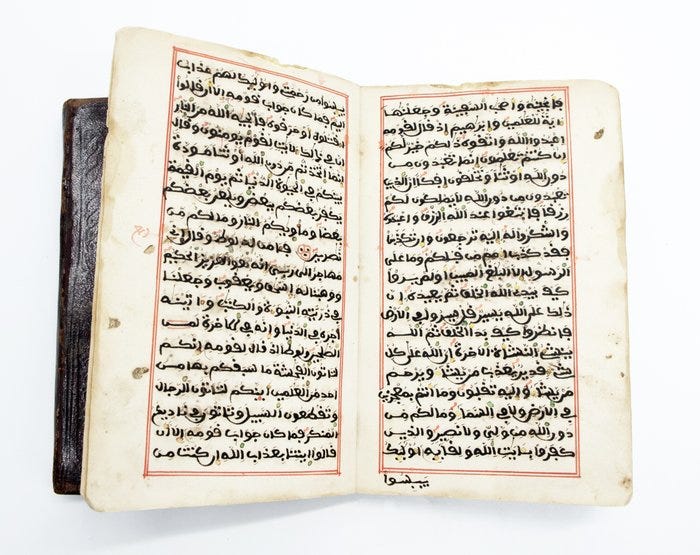 فانجيه واصحب السفينة وجعلنها
ءاية للعلمين وابرهيم اذ قال لقومه
اعبدوا الله واتقوه ذلكم خير لكم
ان كنتم تعلمون انما تعبدون من
دون الله اوثنا وتخلقون افكا ان الذين
تعبدون من دون الله لا يملكون لكم
رزقا فابتغوا عند الله الرزق واعبدوه
واشكروا له اليه ترجعون وان تكذبوا
فقد كذب امم من قبلكم وما على
الرسول الا البلغ المبين اولم يروا
كيف يبدئ الله الخلق ثم يعيده ان
ذلك على الله يسير قل سيروا في الارض
فانظروا كيف بدا الخلق ثم الله
ينشئ النشاة الاخرة ان الله على كل
شيء قدير يعذب من يشاء ويرحم
من يشاء واليه تقلبون وما انتم بمعجزين
في الارض ولا في السماء وما لكم من
دون الله من ولي ولا نصير والذين
كفروا بايت الله ولقايه اوليك
ييسوا
ييسوا من رحمتي واوليك لهم عذاب
اليم فما كان جواب قومه الا ان قالوا
اقتلوه او حرقوه فانجيه الله من النار
ان في ذلك لايت لقوم يومنون وقال
انما اتخذتم من دون الله اوثنا مودة
بينكم في الحيوة الدنيا ثم يوم القيمة
يكفر بعضكم ببعض ويلعن بعضكم
بعضا وماويكم النار وما لكم من
نصرين فامن له لوط وقال اني
مهاجر الى ربي انه هو العزيز الحكيم
ووهبنا له اسحق ويعقوب وجعلنا
في ذريته النبوة والكتب وءاتينه
اجره في الدنيا وانه في الاخرة لمن
الصلحين ولوطا اذ قال لقومه انكم
لتاتون الفحشة ما سبقكم بها من
احد من العلمين اينكم لتاتون الرجال
وتقطعون السبيل وتاتون في ناديكم
المنكر فما كان جواب قومه الا ان
قالوا ايتنا بعذاب الله ان كنت من